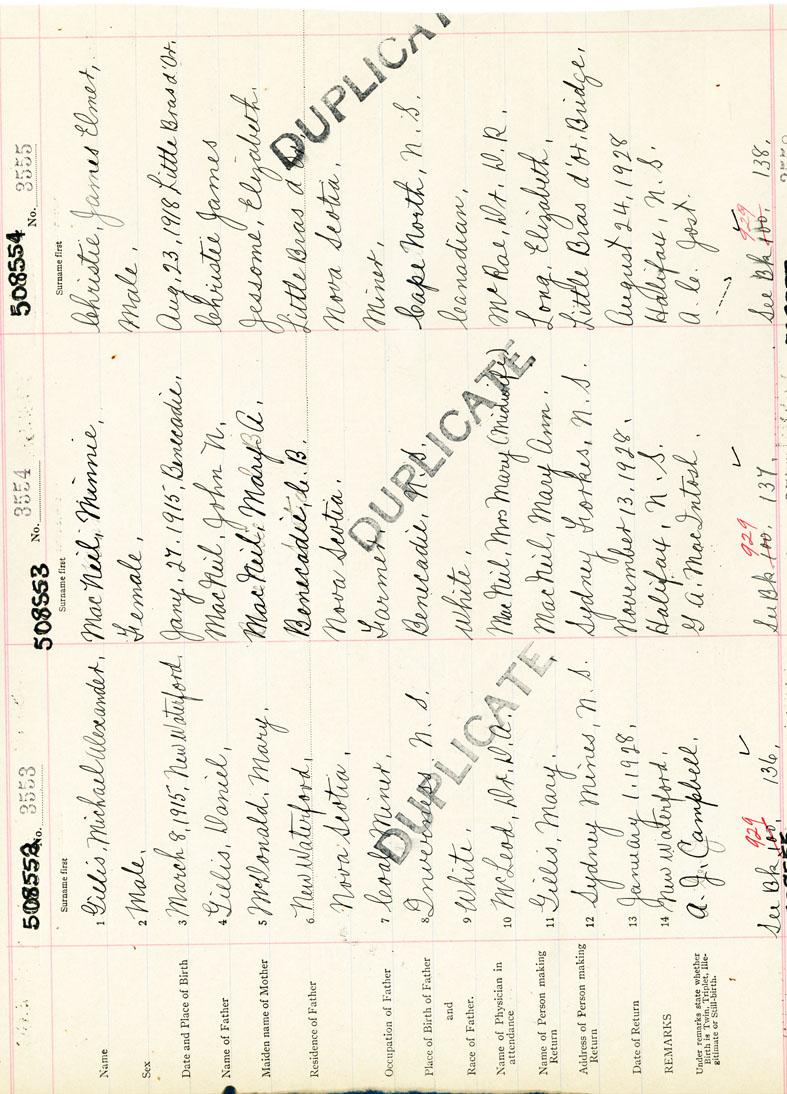 Name
Sex
Date and Place of Birth
Name of Father
Maiden name of Mother
Residence of Father
Occupation of Father
Place of Birth of Father
and
Race of Father.
Name of Physician in
attendance
Name of Person making
Return
Address of Person making
Return
Date of Return
REMARKS
Under remarks state whether
Birth is Twin, Triplet, Ille-
gitimate or Still-birth.
508552
No. 3553
Surname first
1 Gillis, Michael Alexander,
2 Male,
3 March 8, 1915, New Waterford,
4 Gillis, Daniel,
5 McDonald, Mary.
6 New Waterford,
Nova Scotia,
7 Coal Miner,
8 Inverness, N. S.
9 White,
10 McLeod, Dr. D. A.
11 Gillis, Mary.
12 Sydney Mines, N. S.
13 January 1, 1928,
14 New Waterford.
A. J. Campbell.
929
See Bk 100, 136,
DUPLICATE
508553
No. 3554
Surname first
MacNeil, Minnie,
Female,
Jany, 27, 1915, Benecadie,
MacNeil, John N.
MacNeil, Mary A.
Benecadie, C. B.
Nova Scotia.
Farmer
Benecadie, N.S.
White,
MacNeil, Mrs Mary (Midwife)
MacNeil, Mary Ann.
Sydney Forkes, N. S.
November 13, 1928.
Halifax, N. S.
G A. MacIntosh.
929
See Bk 100, 137,
DUPLICATE
508554
No. 3555
Surname first
Christie, James Elmer,
Male,
Aug, 23, 1918 Little Bras d'Or,
Christie James
Jessome, Elizabeth.
Little Bras d'Or,
Nova Scotia,
Miner,
Cape North, N. S.
Canadian,
McRae, Dr. D. R.
Long, Elizabeth,
Little Bras d'Or Bridge,
August 24, 1928
Halifax, N. S.
A. C. Jost.
929
See Bk 100, 138,
DUPLICAT